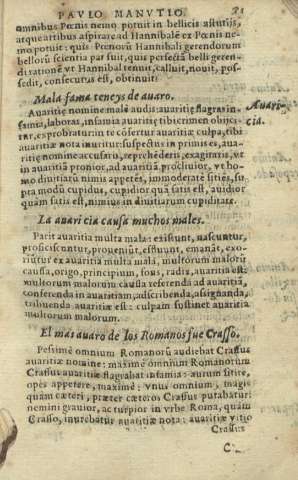 PAVLO MANVTIO.
omnibus Pœnè nemo potuit in bellicis astutijs,
atque artibus aspirare ad Hannibalē ex Pœnis ne-
mo potuit: quis Pœnorū Hannibali gerendorum
bellorū scientia par fuit, quis perfectā belli geren-
di rationē vt Hannibal tenuit, calluit, nouit, pos-
sedit, consecutus est, obtinuit?
Mala fama teneys de auaro.
Auari-
cia.
Auaritię nomine malè audis: auaritię flagras in-
famia, laboras, infamia auaritię tibi crimen objici-
tur, exprobratur: in te cōfertur auaritiæ culpa, tibi
auaritiæ nota inuritur: suspectus in primis es, aua-
ritię nomine accusaris, reprehēderis, exagitaris, vt
in auaritiā pronior, ad auaritiā procliuior, vt ho-
mo diuitiarū nimis appetēs, immoderatè sitiēs, su-
pra modū cupidus, cupidior quā satis est, auidior
quàm satis est, nimius in diuitiarum cupiditate.
La auaricia causa muchos males.
Parit auaritia multa mala: existunt, nascuntur,
proficiscuntur, proueniūt, effluunt, emanāt, exo-
riūtur ex auaritia multa mala, multorum malorū
causa, origo, principium, fons, radix, auaritia est:
multorum malorum causa referenda ad auaritiā,
conferenda in auaritiam, adscribenda, assignanda,
tribuenda auaritiæ est: culpam sustinet auaritia
multorum malorum.
El mas auaro de los Romanos fue Crasso.
Pessimè omnium Romanorū audiebat Crassus
auaritiæ nomine: maximè omnium Romanorum
Crassus auaritiæ flagrabat infamia: aurum sitire,
opes appetere, maximè; vnus omnium, magis
quàm cæteri, præter cæteros Crassus putabatur:
nemini grauior, ac turpior in vrbe Roma, quàm
Crasso, inurebatur auaritiæ nota: auaritiæ vitio
Crassus